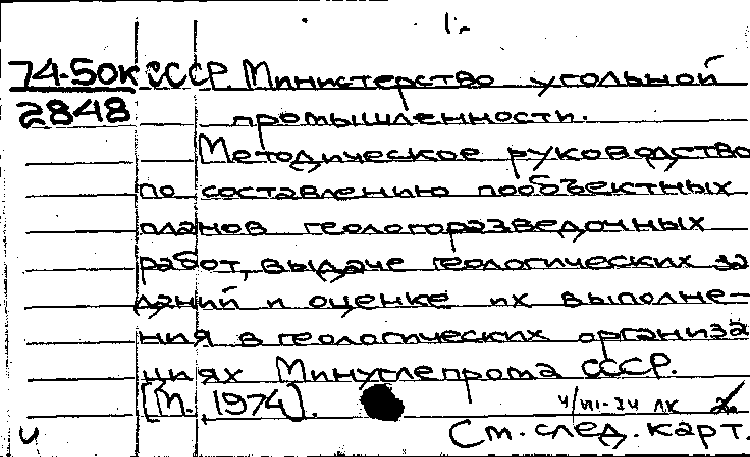 1.
74-50К СССР. Министерство угольной
2848 промышленности.
Методическое руководство
по составлению пообъектных
планов геологоразведочных
работ, выдаче геологических за
даний и оценке их выполне-
ния в геологических организа
циях Минуглепрома СССР.
[М., 1974].
4/VII-74 ЛК 2.
и См. след. карт.